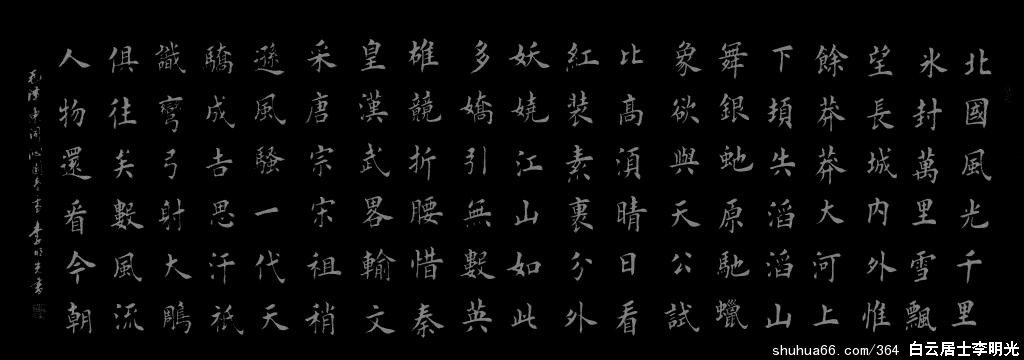 北國風光千里
氷封萬里雪飄
望長城内外惟
餘莽莽大河上
下頓失滔滔山
舞銀虵原馳蠟
象欲與天公試
比高須晴日看
紅装素裏分外
妖嬈江山如此
多嬌引無數英
雄競折腰惜秦
皇漢武畧輸文
采唐宗宋祖稍
遜風騷一代天
驕成吉思汗祇
識彎弓射大鵰
俱往矣數風流
人物還看今朝
毛澤東词沁園春雪 李明光書
shuhua66.com/364 白云居士李明光